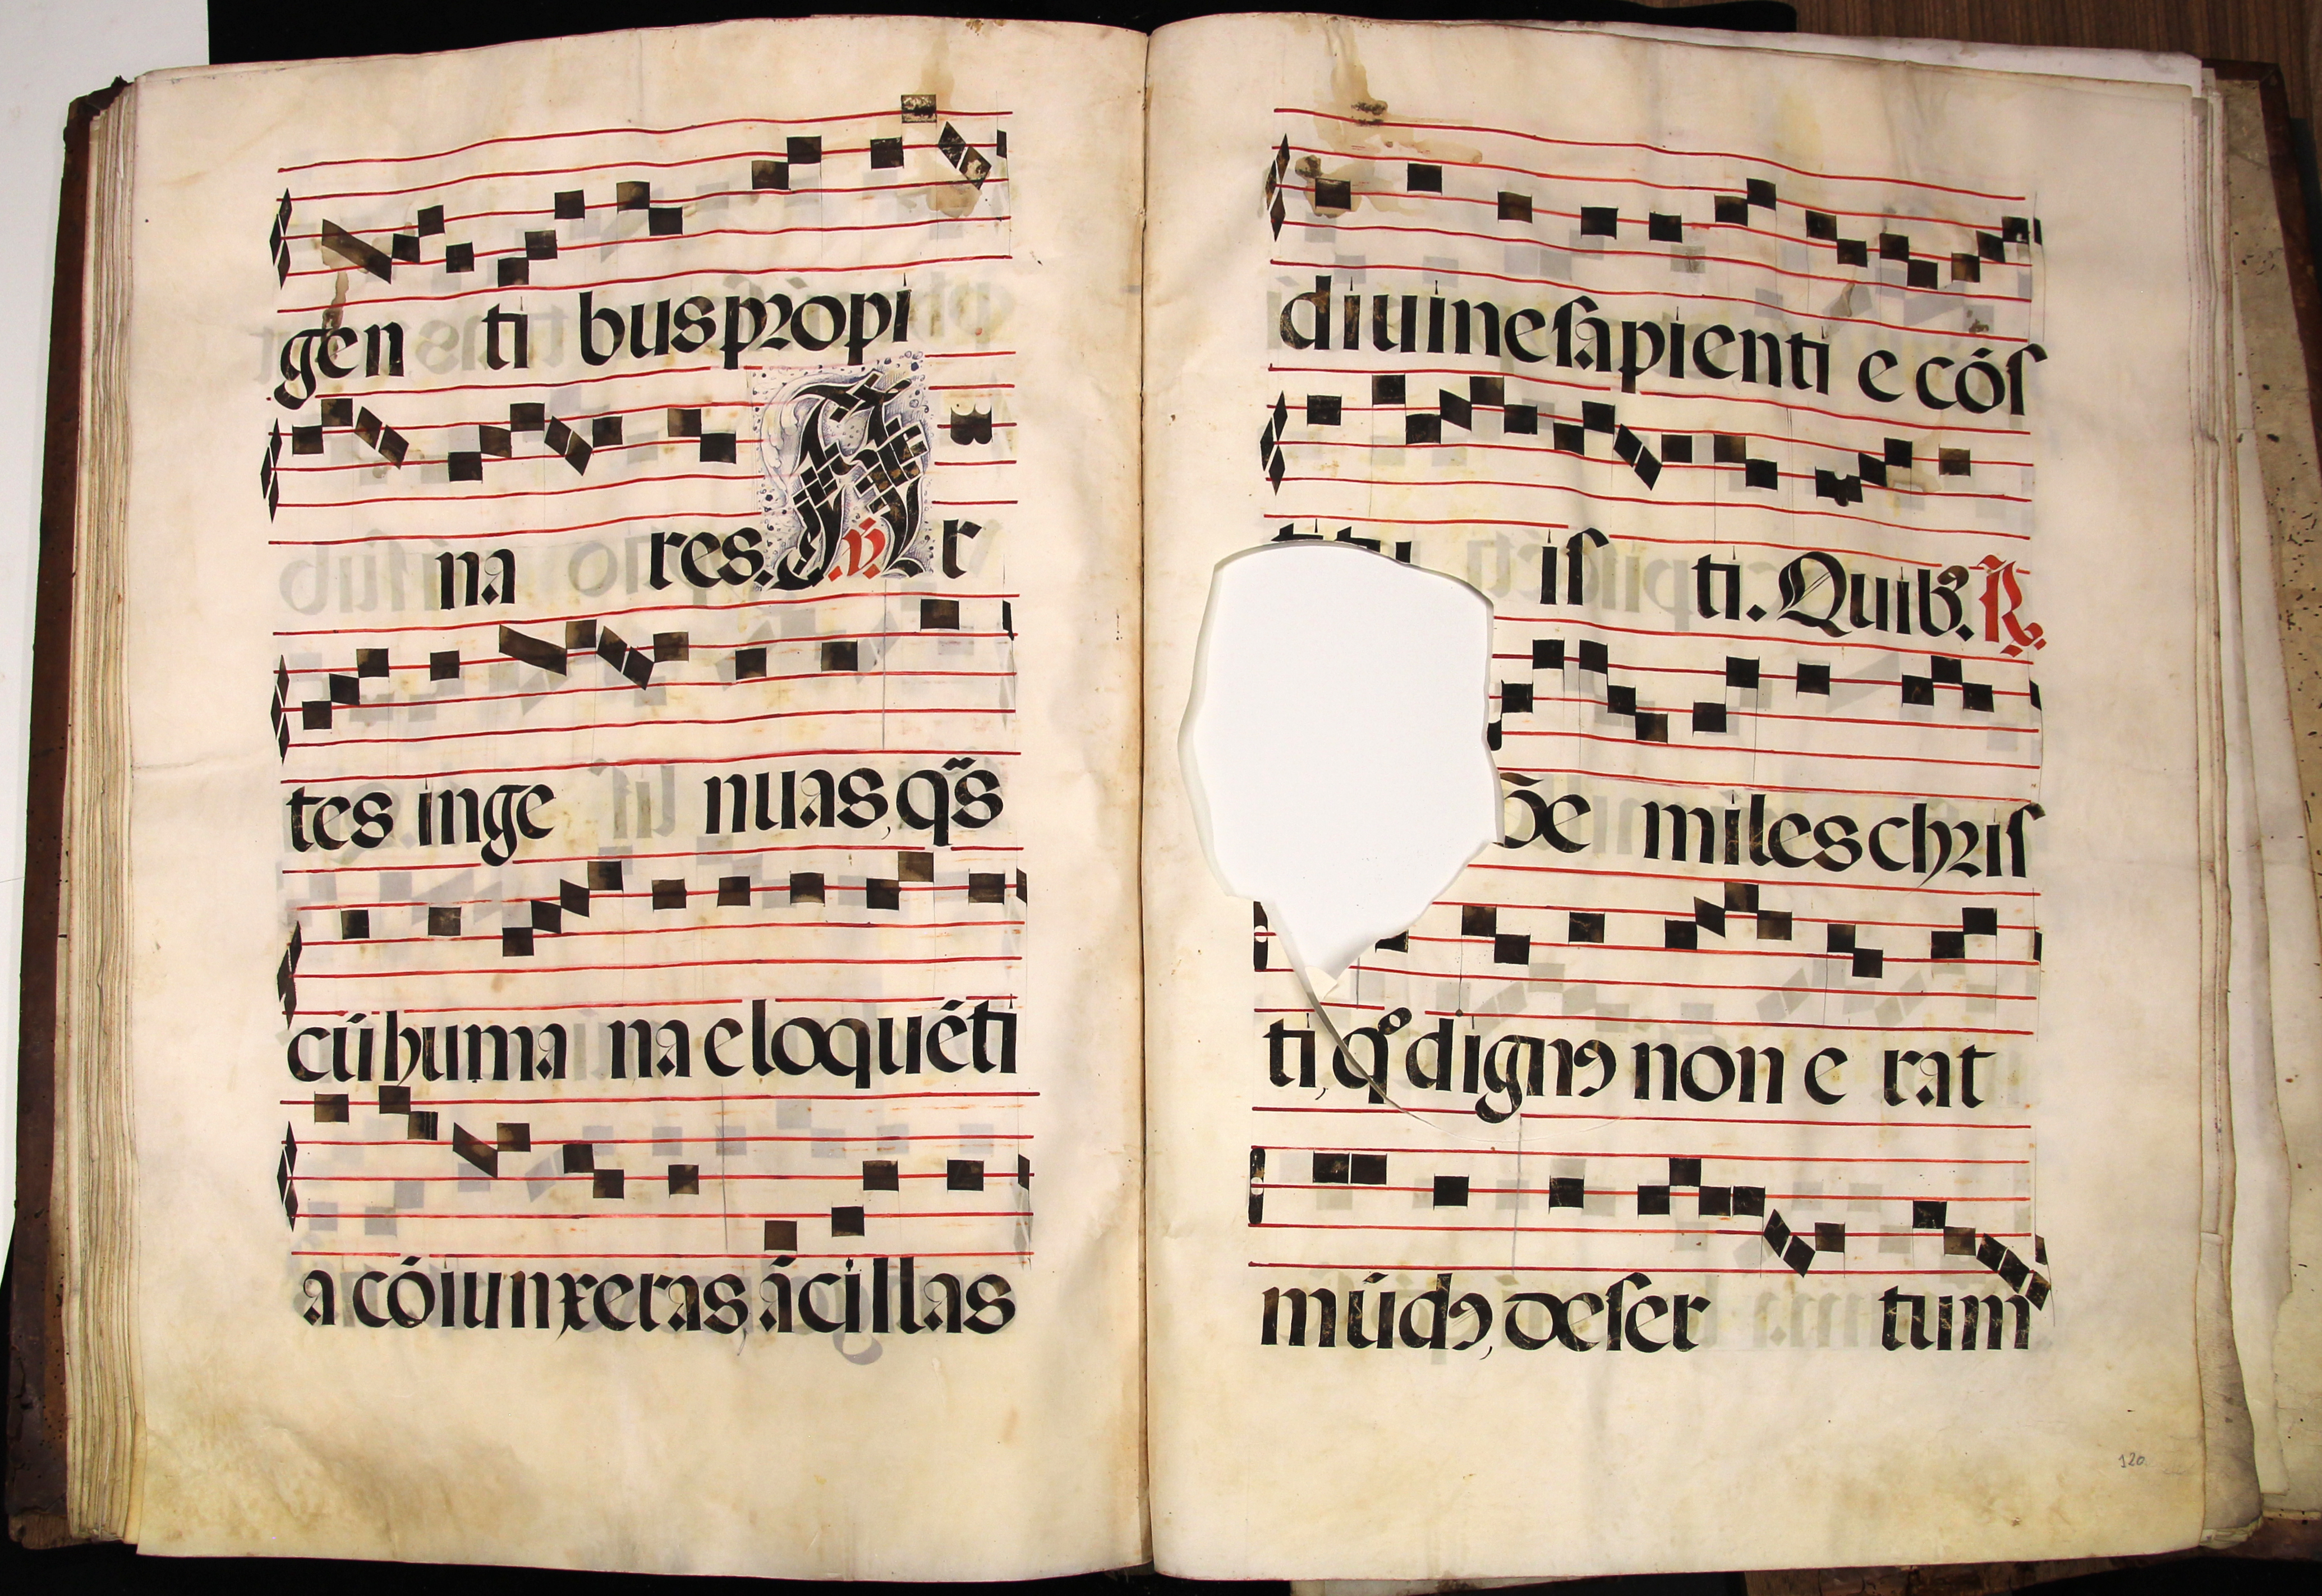 gen ti bus propi
na res. ℣. Ar
tes inge nuas, qᷓs
cū huma na eloquēti
a cōiunxeras, ācillas
diuine ſapienti e cōſ
titu iſ ti. Quibꝫ. ℟.
de miles chriſ
ti, qͦ dignꝰ non e rat
mūdꝰ, deſer tum
120